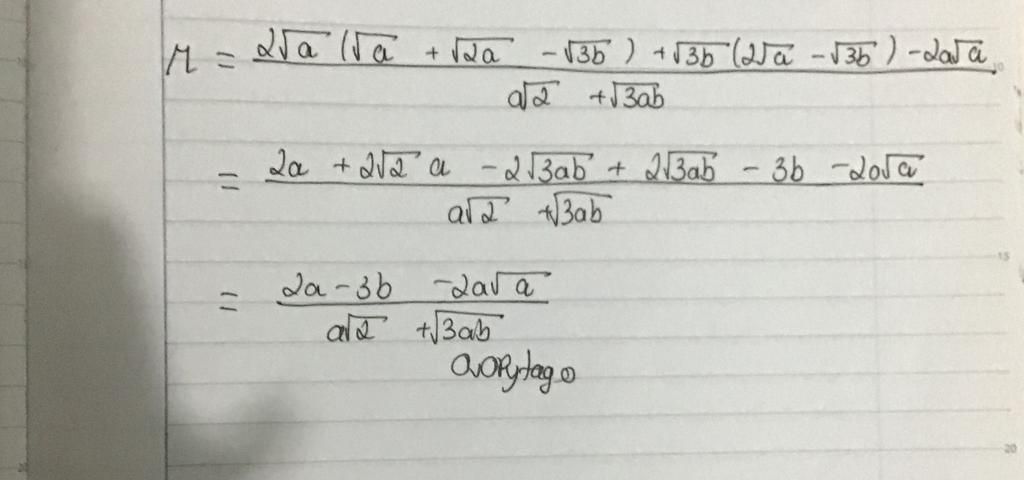 M = \frac{2\sqrt{a} (\sqrt{a} + \sqrt{2a} - \sqrt{3b}) + \sqrt{3b} (2\sqrt{a} - \sqrt{3b}) - 2a\sqrt{a}}{a\sqrt{2} + \sqrt{3ab}}
= \frac{2a + 2\sqrt{2} a - 2\sqrt{3ab} + 2\sqrt{3ab} - 3b - 2a\sqrt{a}}{a\sqrt{2} + \sqrt{3ab}}
= \frac{2a - 3b - 2a\sqrt{a}}{a\sqrt{2} + \sqrt{3ab}}
15
20